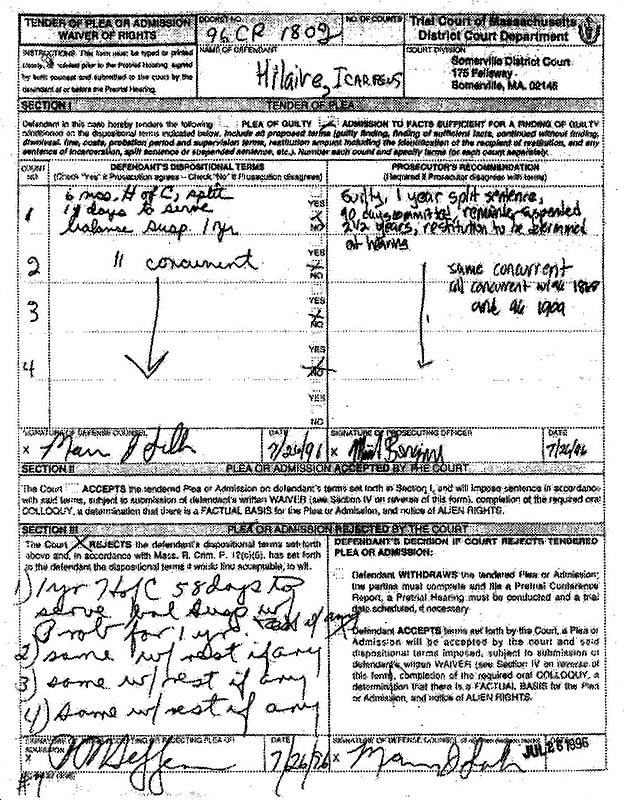 TENDER OF PLEA OR ADMISSION
WAIVER OF RIGHTS
DOCKET NO.
96 CR 1809
NO. OF COUNTS
Trial Court of Massachusetts
District Court Department
INSTRUCTIONS: This form must be typed or printed
clearly, completed prior to the Pretrial Hearing, signed
by both counsel and submitted to the court by the
defendant at or before the Pretrial Hearing.
NAME OF DEFENDANT
Hilaire,
COURT DIVISION
Somerville District Court
175 Fellsway
Somerville, MA. 02145
SECTION I
TENDER OF PLEA
Defendant in this case hereby tenders the following PLEA OF GUILTY ADMISSION TO FACTS SUFFICIENT FOR A FINDING OF GUILTY
conditioned on the dispositional terms indicated below. Include all proposed terms (guilty finding, finding of sufficient facts, continued without finding,
dismissal, fine, costs, probation period and supervision terms, restitution amount including the identification of the recipient of restitution, and any
sentence of incarceration, split sentence or suspended sentence, etc.). Number each count and specify terms for each count separately.
COUNT NO.
DEFENDANT'S DISPOSITIONAL TERMS
(Check "Yes" if Prosecution agrees - Check "No" if Prosecution disagrees)
PROSECUTOR'S RECOMMENDATION
(Required if Prosecutor disagrees with terms)
1
6 mos. H of C, split
days to serve
balance susp. 1 yr
YES
NO
Guilty, 1 year split sentence,
90 days committed, remainder suspended
2 years, restitution to be determined
at hearing
2
" concurrent
YES
NO
same concurrent
all concurrent w/
and 96 1909
3
YES
NO
4
YES
NO
YES
NO
SIGNATURE OF DEFENSE COUNSEL
x
DATE
7/26/96
SIGNATURE OF PROSECUTING OFFICER
x
DATE
7/26/96
SECTION II
PLEA OR ADMISSION ACCEPTED BY THE COURT
The Court ACCEPTS the tendered Plea or Admission on defendant's terms set forth in Section I, and will impose sentence in accordance
with said terms, subject to submission of defendant's written WAIVER (see Section IV on reverse of this form), completion of the required oral
COLLOQUY, a determination that there is a FACTUAL BASIS for the Plea or Admission, and notice of ALIEN RIGHTS.
SECTION III
PLEA OR ADMISSION REJECTED BY THE COURT
The Court X REJECTS the defendant's dispositional terms set forth
above and, in accordance with Mass. R. Crim. P. 12(c)(6), has set forth
the dispositional terms it would find acceptable, to wit:
1) 1 yr H of C 58 days to
serve bal susp w/
Prob for 1 yr. rest if any
2) same w/ rest if any
3) same w/ rest if any
4) same w/ rest if any
DEFENDANT'S DECISION IF COURT REJECTS TENDERED
PLEA OR ADMISSION:
Defendant WITHDRAWS the tendered Plea or Admission;
the parties must complete and file a Pretrial Conference
Report, a Pretrial Hearing must be conducted and a trial
date scheduled, if necessary.
Defendant ACCEPTS terms set forth by the Court, a Plea or
Admission will be accepted by the court and said
dispositional terms imposed, subject to submission of
defendant's written WAIVER (see Section IV on reverse of
this form), completion of the required oral COLLOQUY, a
determination that there is a FACTUAL BASIS for the Plea
or Admission, and notice of ALIEN RIGHTS.
DATE
7/26/96
x
JUL 26 1996